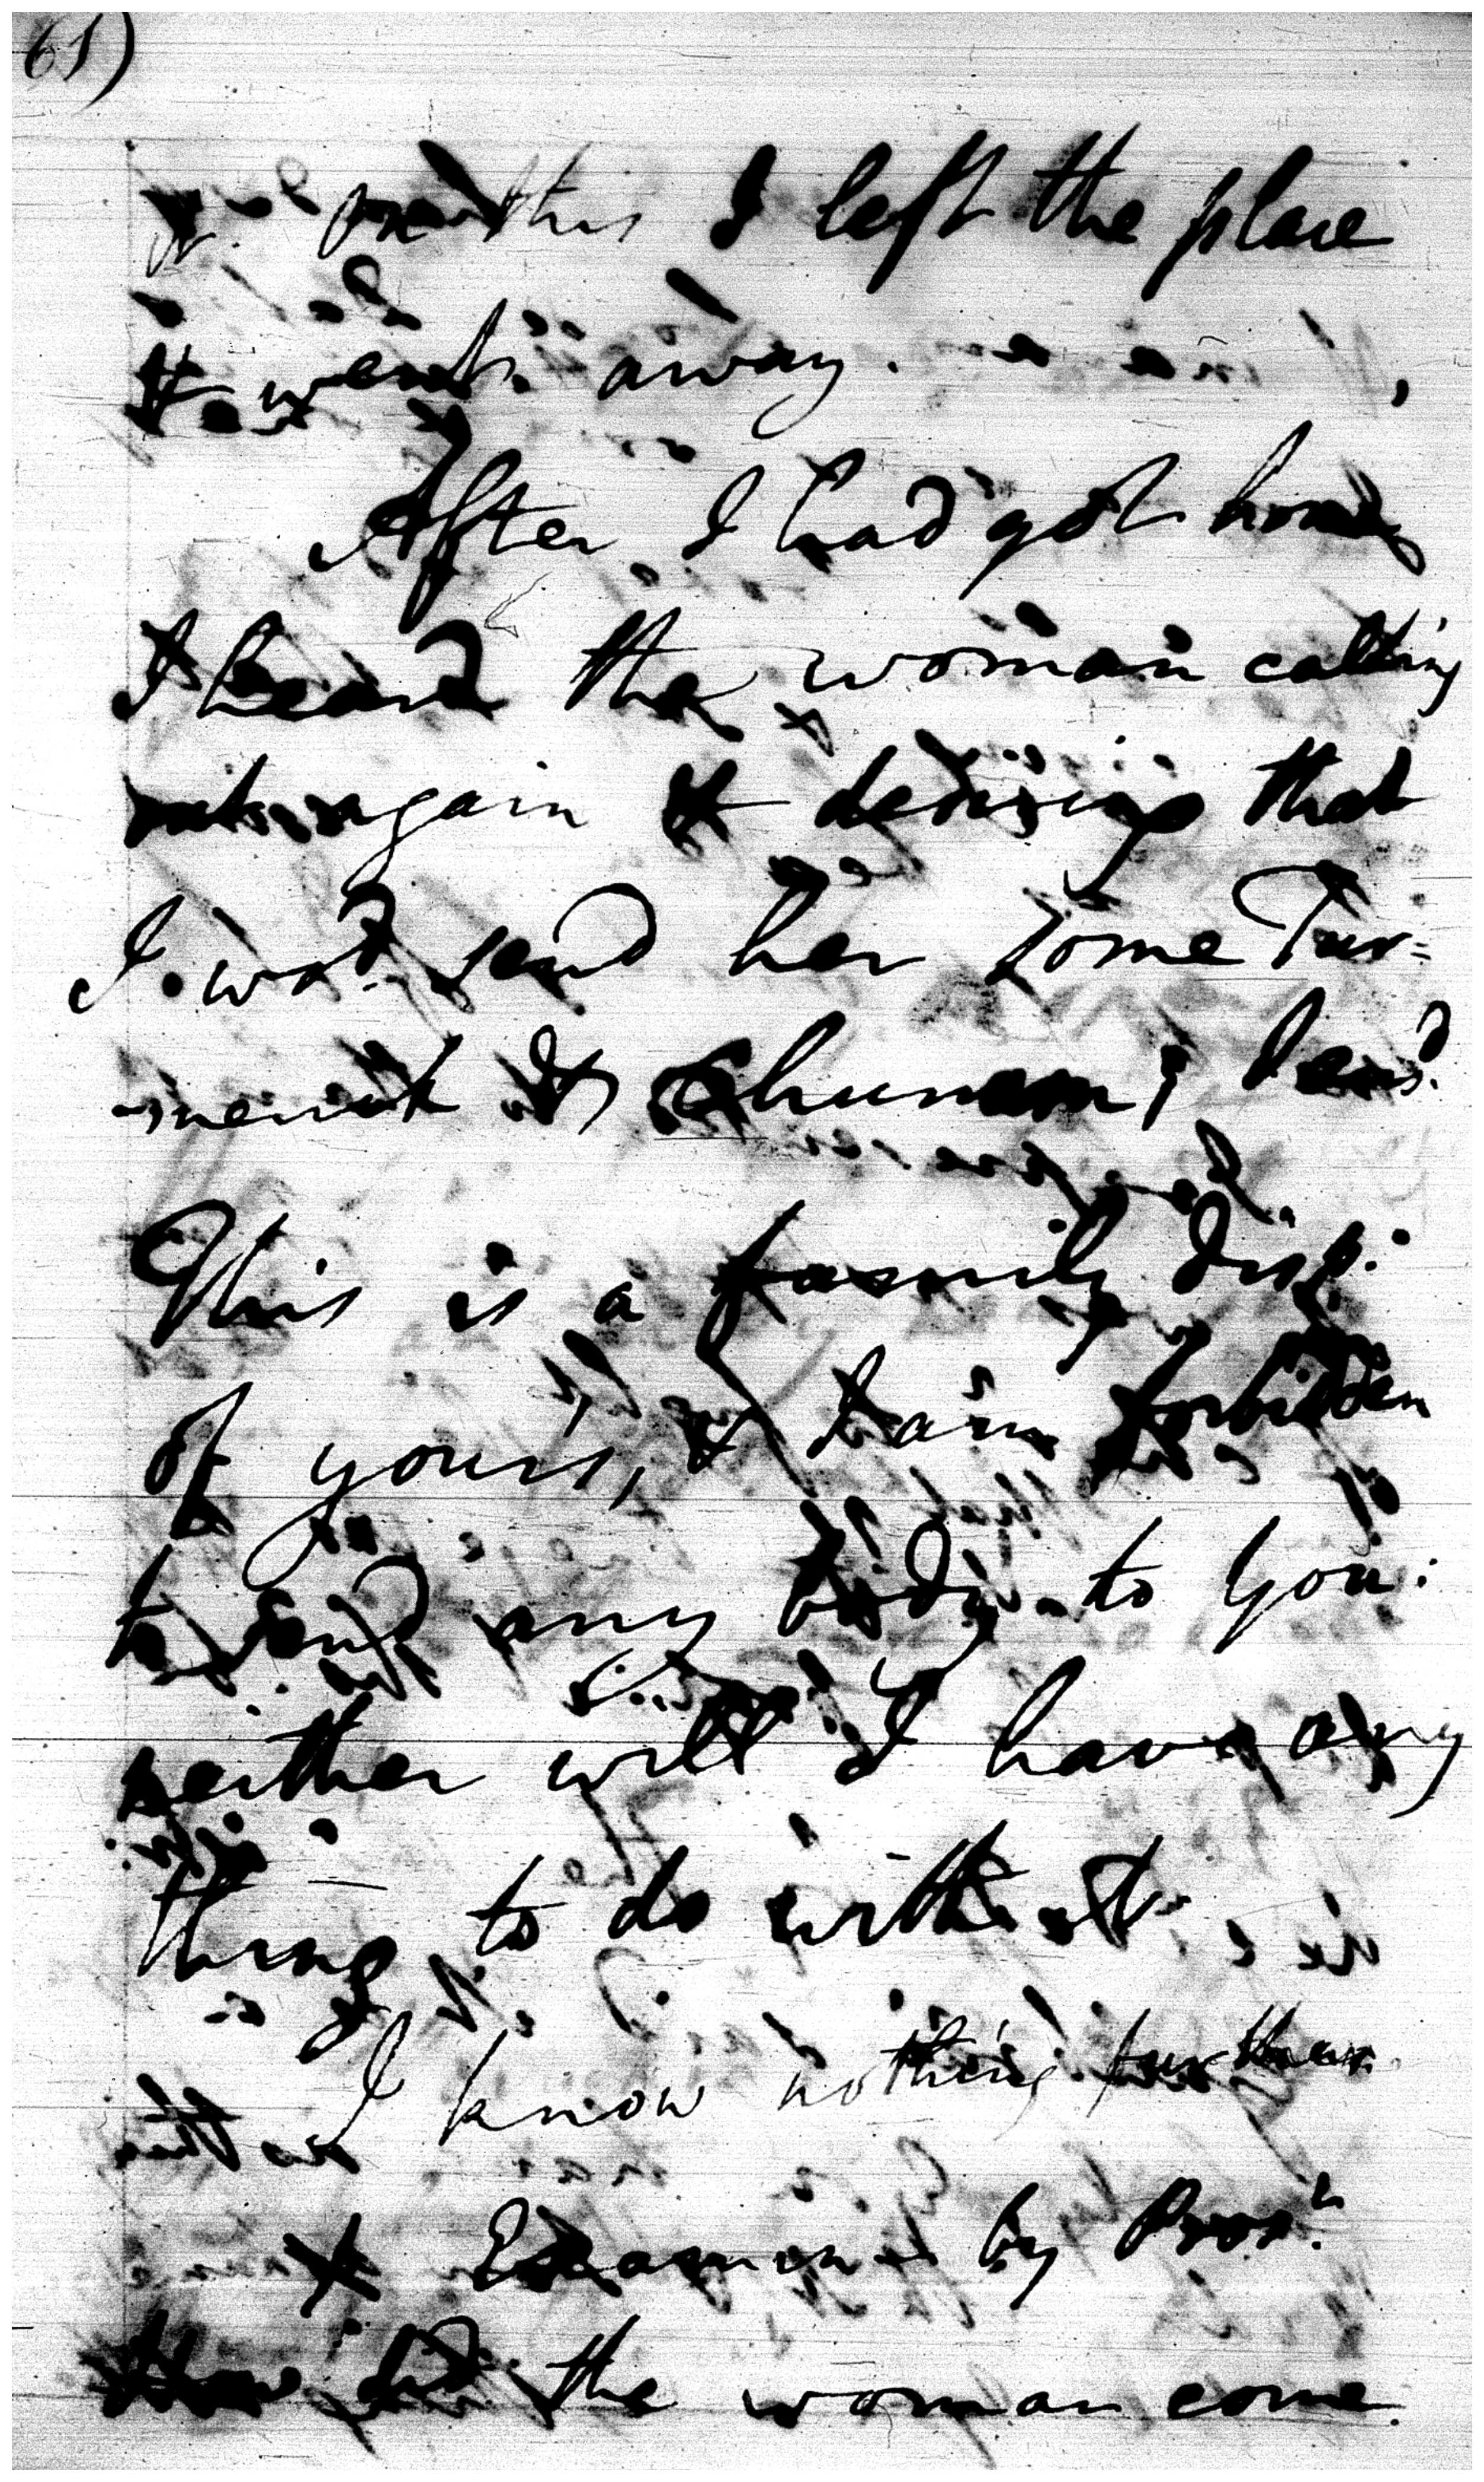 61)
this I left the place
& went away.
After I had got home
I heard the woman calling
out again & desiring that
I wod. send her some Tur=
=merick & Chunam; I ansd.
This is a family disp.
of yours, & I am forbidden
to send any body to you:
neither will I have any
thing to do with it.
I know nothing further.
X Examin by Prosr.
How did the woman come